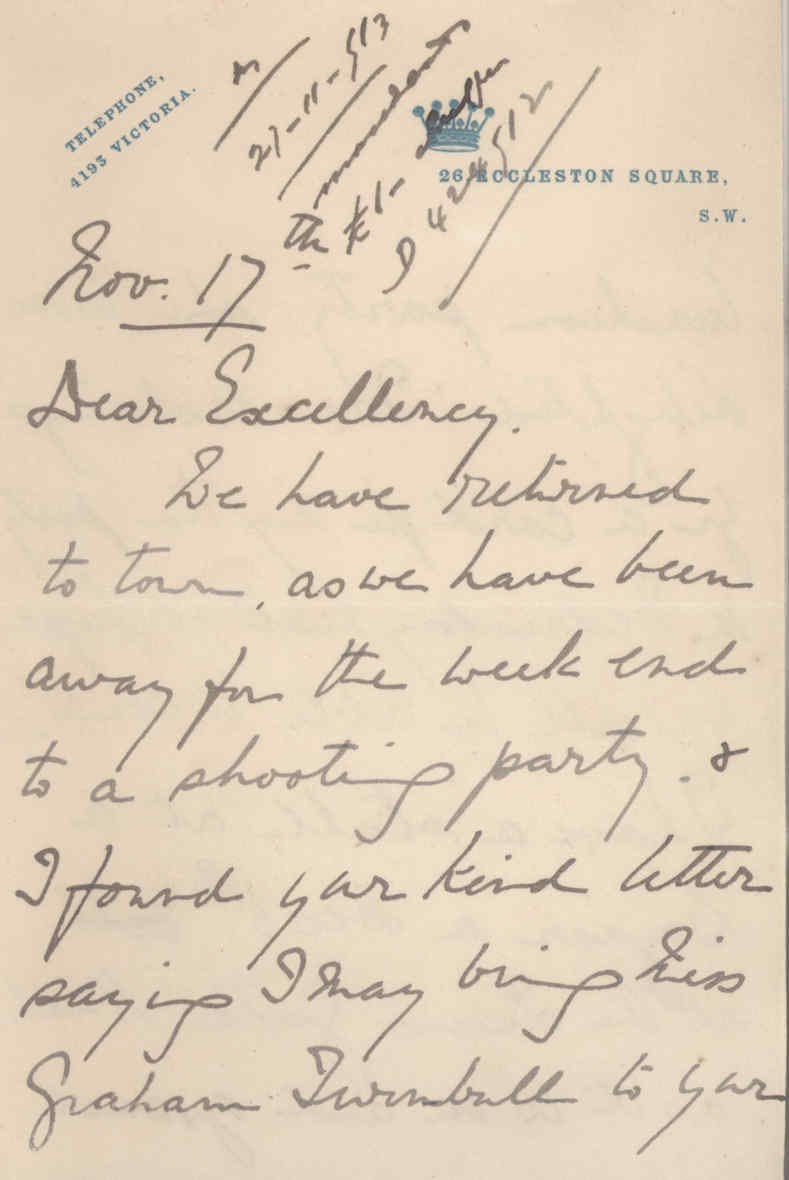 TELEPHONE,
4195 VICTORIA.
26, ECCLESTON SQUARE,
S.W.
Nov. 17th
Dear Excellency.
We have returned
to town, as we have been
away for the week end
to a shooting party. &
I found your kind letter
saying I may bring Miss
Graham Turnbull to your